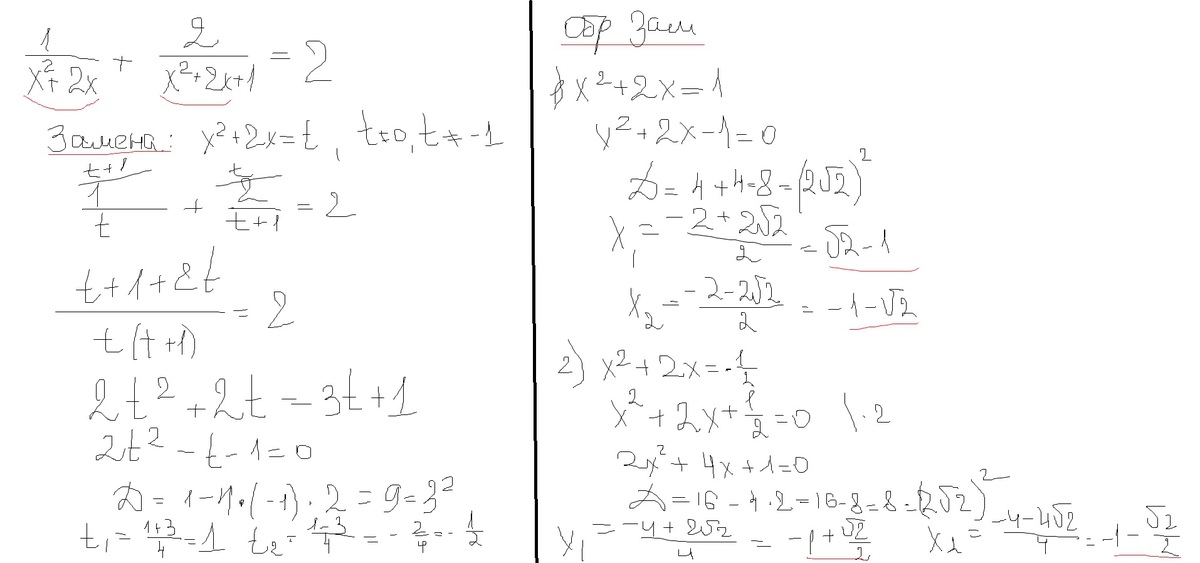 1/(x²+2x) + 2/(x²+2x+1) = 2
Замена: x²+2x=t, t≠0, t≠-1
t+1 t
1/t + 2/(t+1) = 2
(t+1+2t)/(t(t+1)) = 2
2t²+2t=3t+1
2t²-t-1=0
D=1-4·(-1)·2=9=3²
t₁=(1+3)/4=1 t₂=(1-3)/4=-2/4=-1/2
Обр Зам
1) x²+2x=1
x²+2x-1=0
D=4+4=8=(2√2)²
x₁=(-2+2√2)/2=√2-1
x₂=(-2-2√2)/2=-1-√2
2) x²+2x=-1/2
x²+2x+1/2=0 \·2
2x²+4x+1=0
D=16-4·2=16-8=8=(2√2)²
x₁=(-4+2√2)/4=-1+√2/2 x₂=(-4-4√2)/4=-1-√2/2